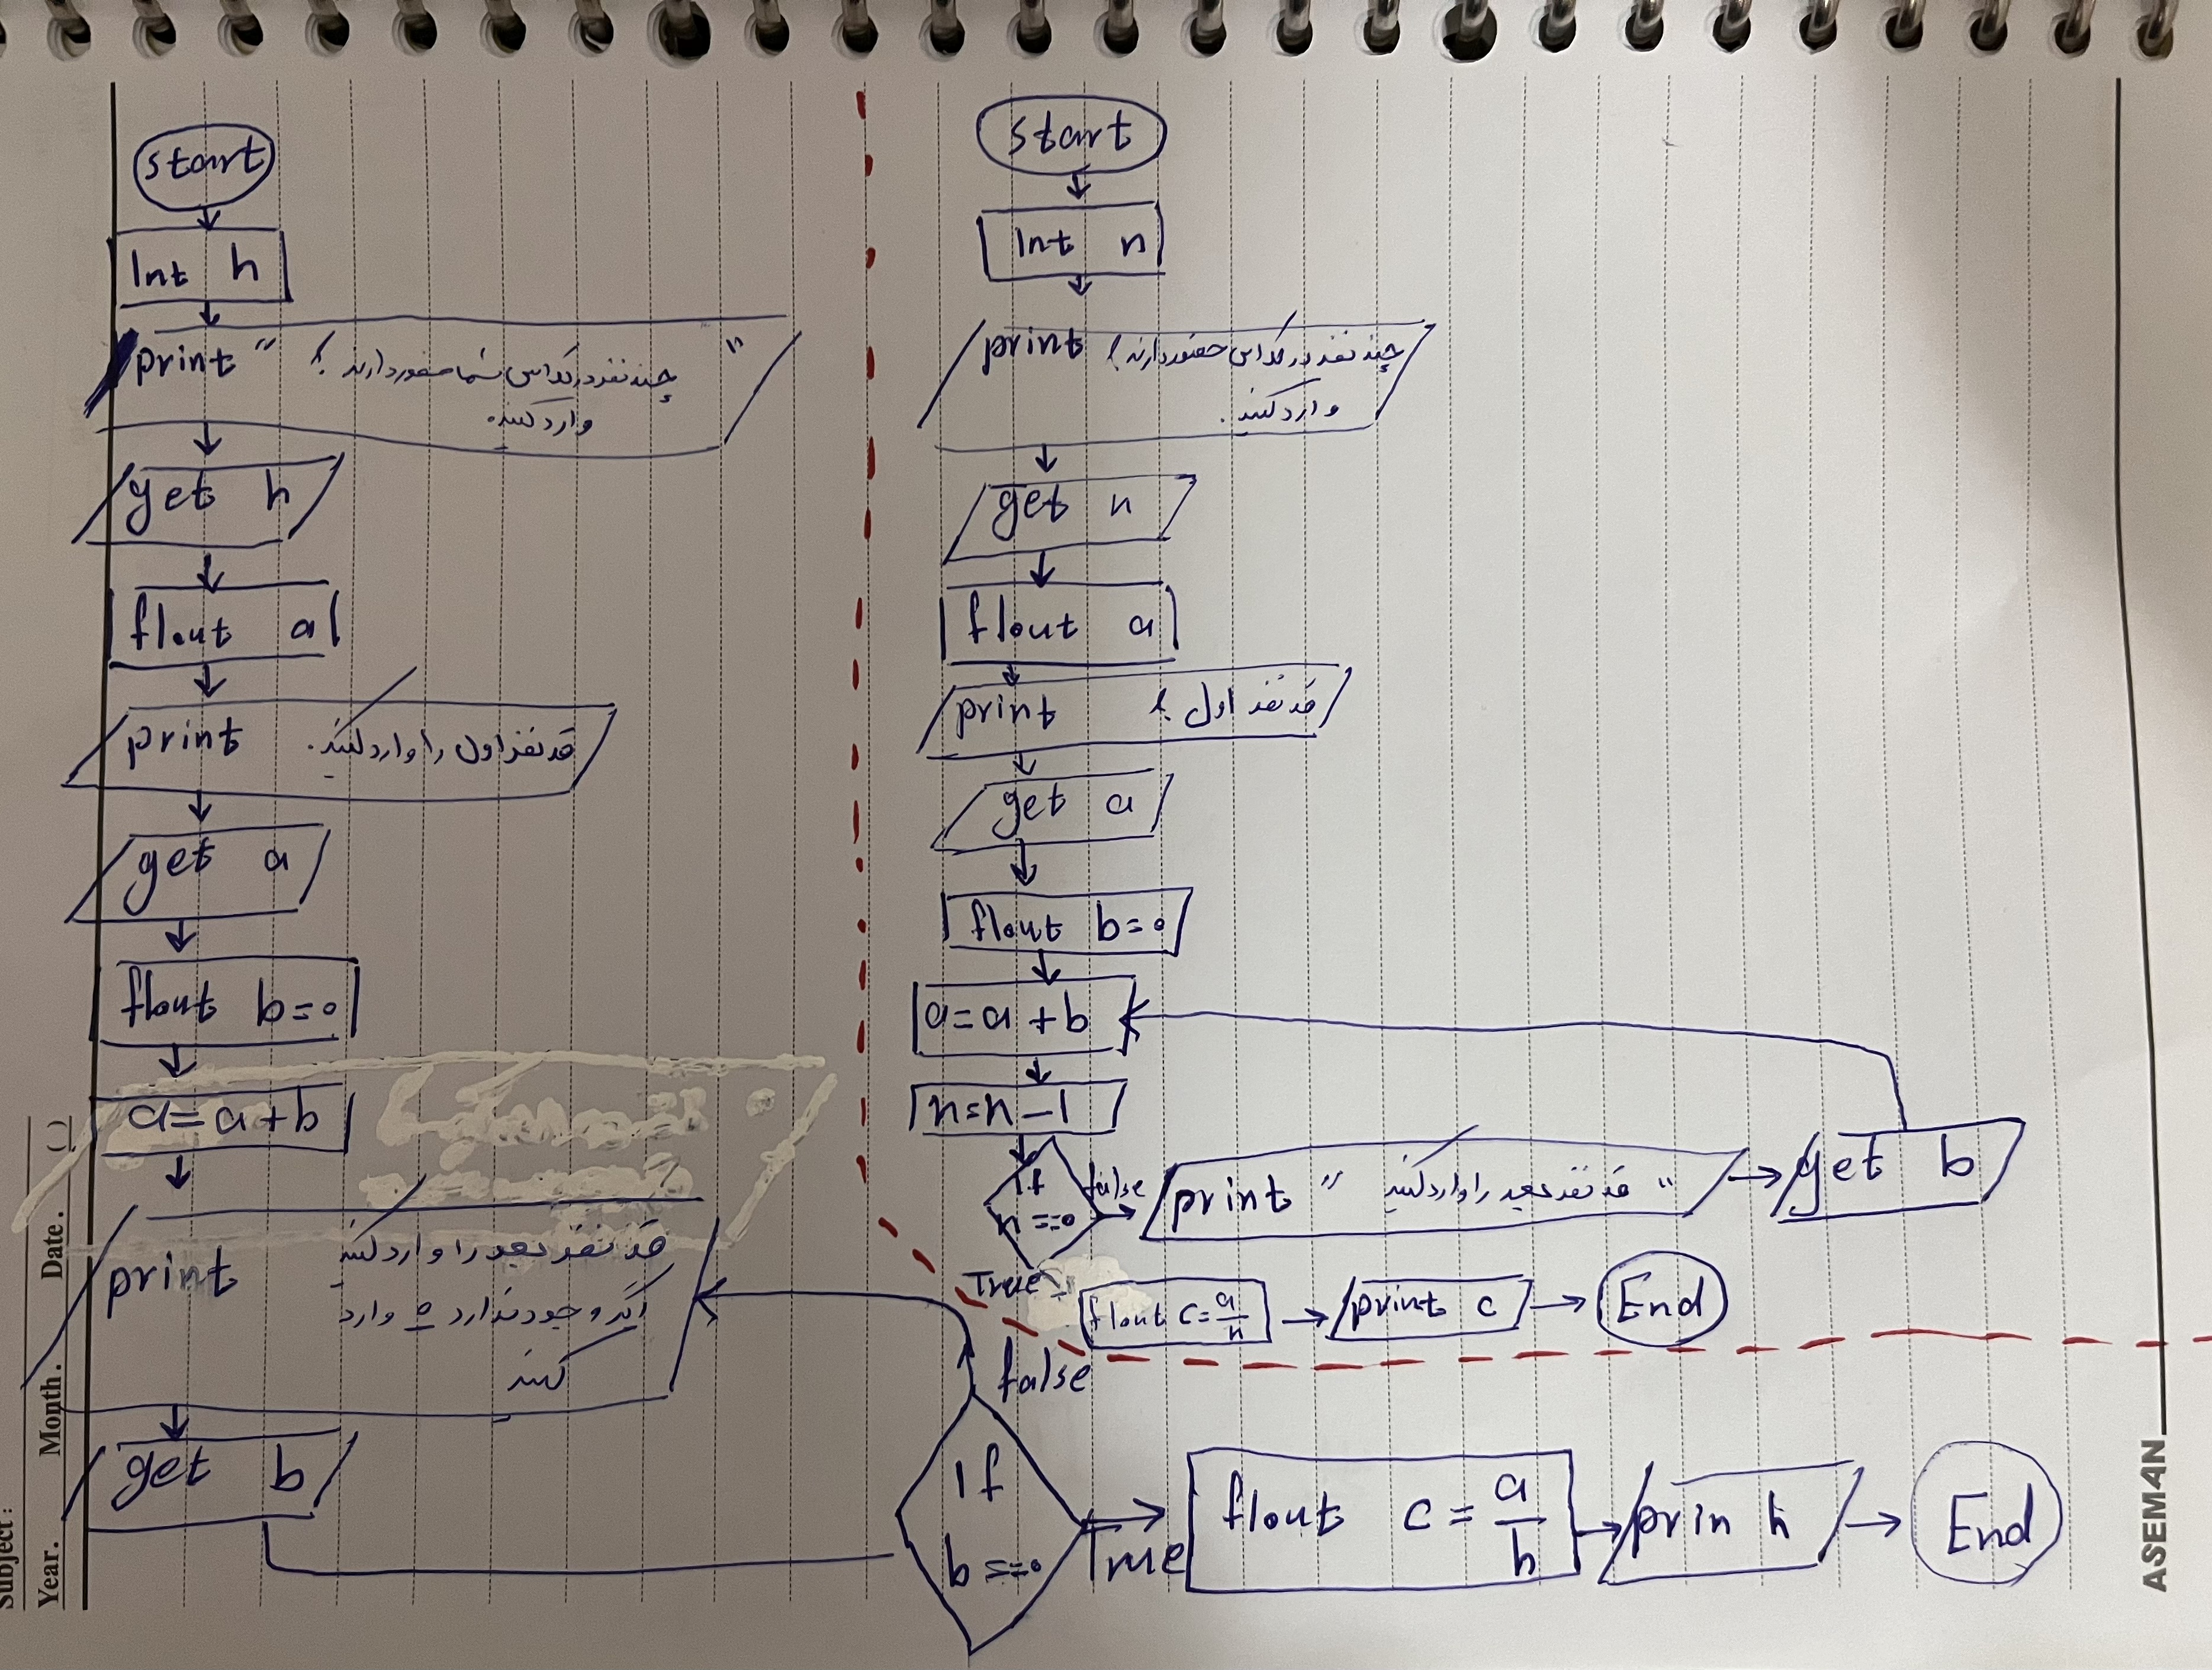 start
Int h
print " چند نفر در کلاس شما حضور دارند ؟ "
وارد کنید.
get h
flout a
print قد نفر اول را وارد کنید.
get a
flout b=0
a=a+b
print قد نفر بعد را وارد کنید
اگر وجود ندارد 0 وارد
کنید
get b
If
b ==0
false
True
flout c = a/h
prin h
End
start
Int n
print چند نفر در کلاس حضور دارند ؟
وارد کنید.
get n
flout a
print قد نفر اول ؟
get a
flout b=0
a=a+b
n=n-1
If
n ==0
false
print " قد نفر بعد را وارد کنید "
get b
True
flout c=a/n
print c
End
Subject:
Year. Month. Date. ( )
ASEMAN